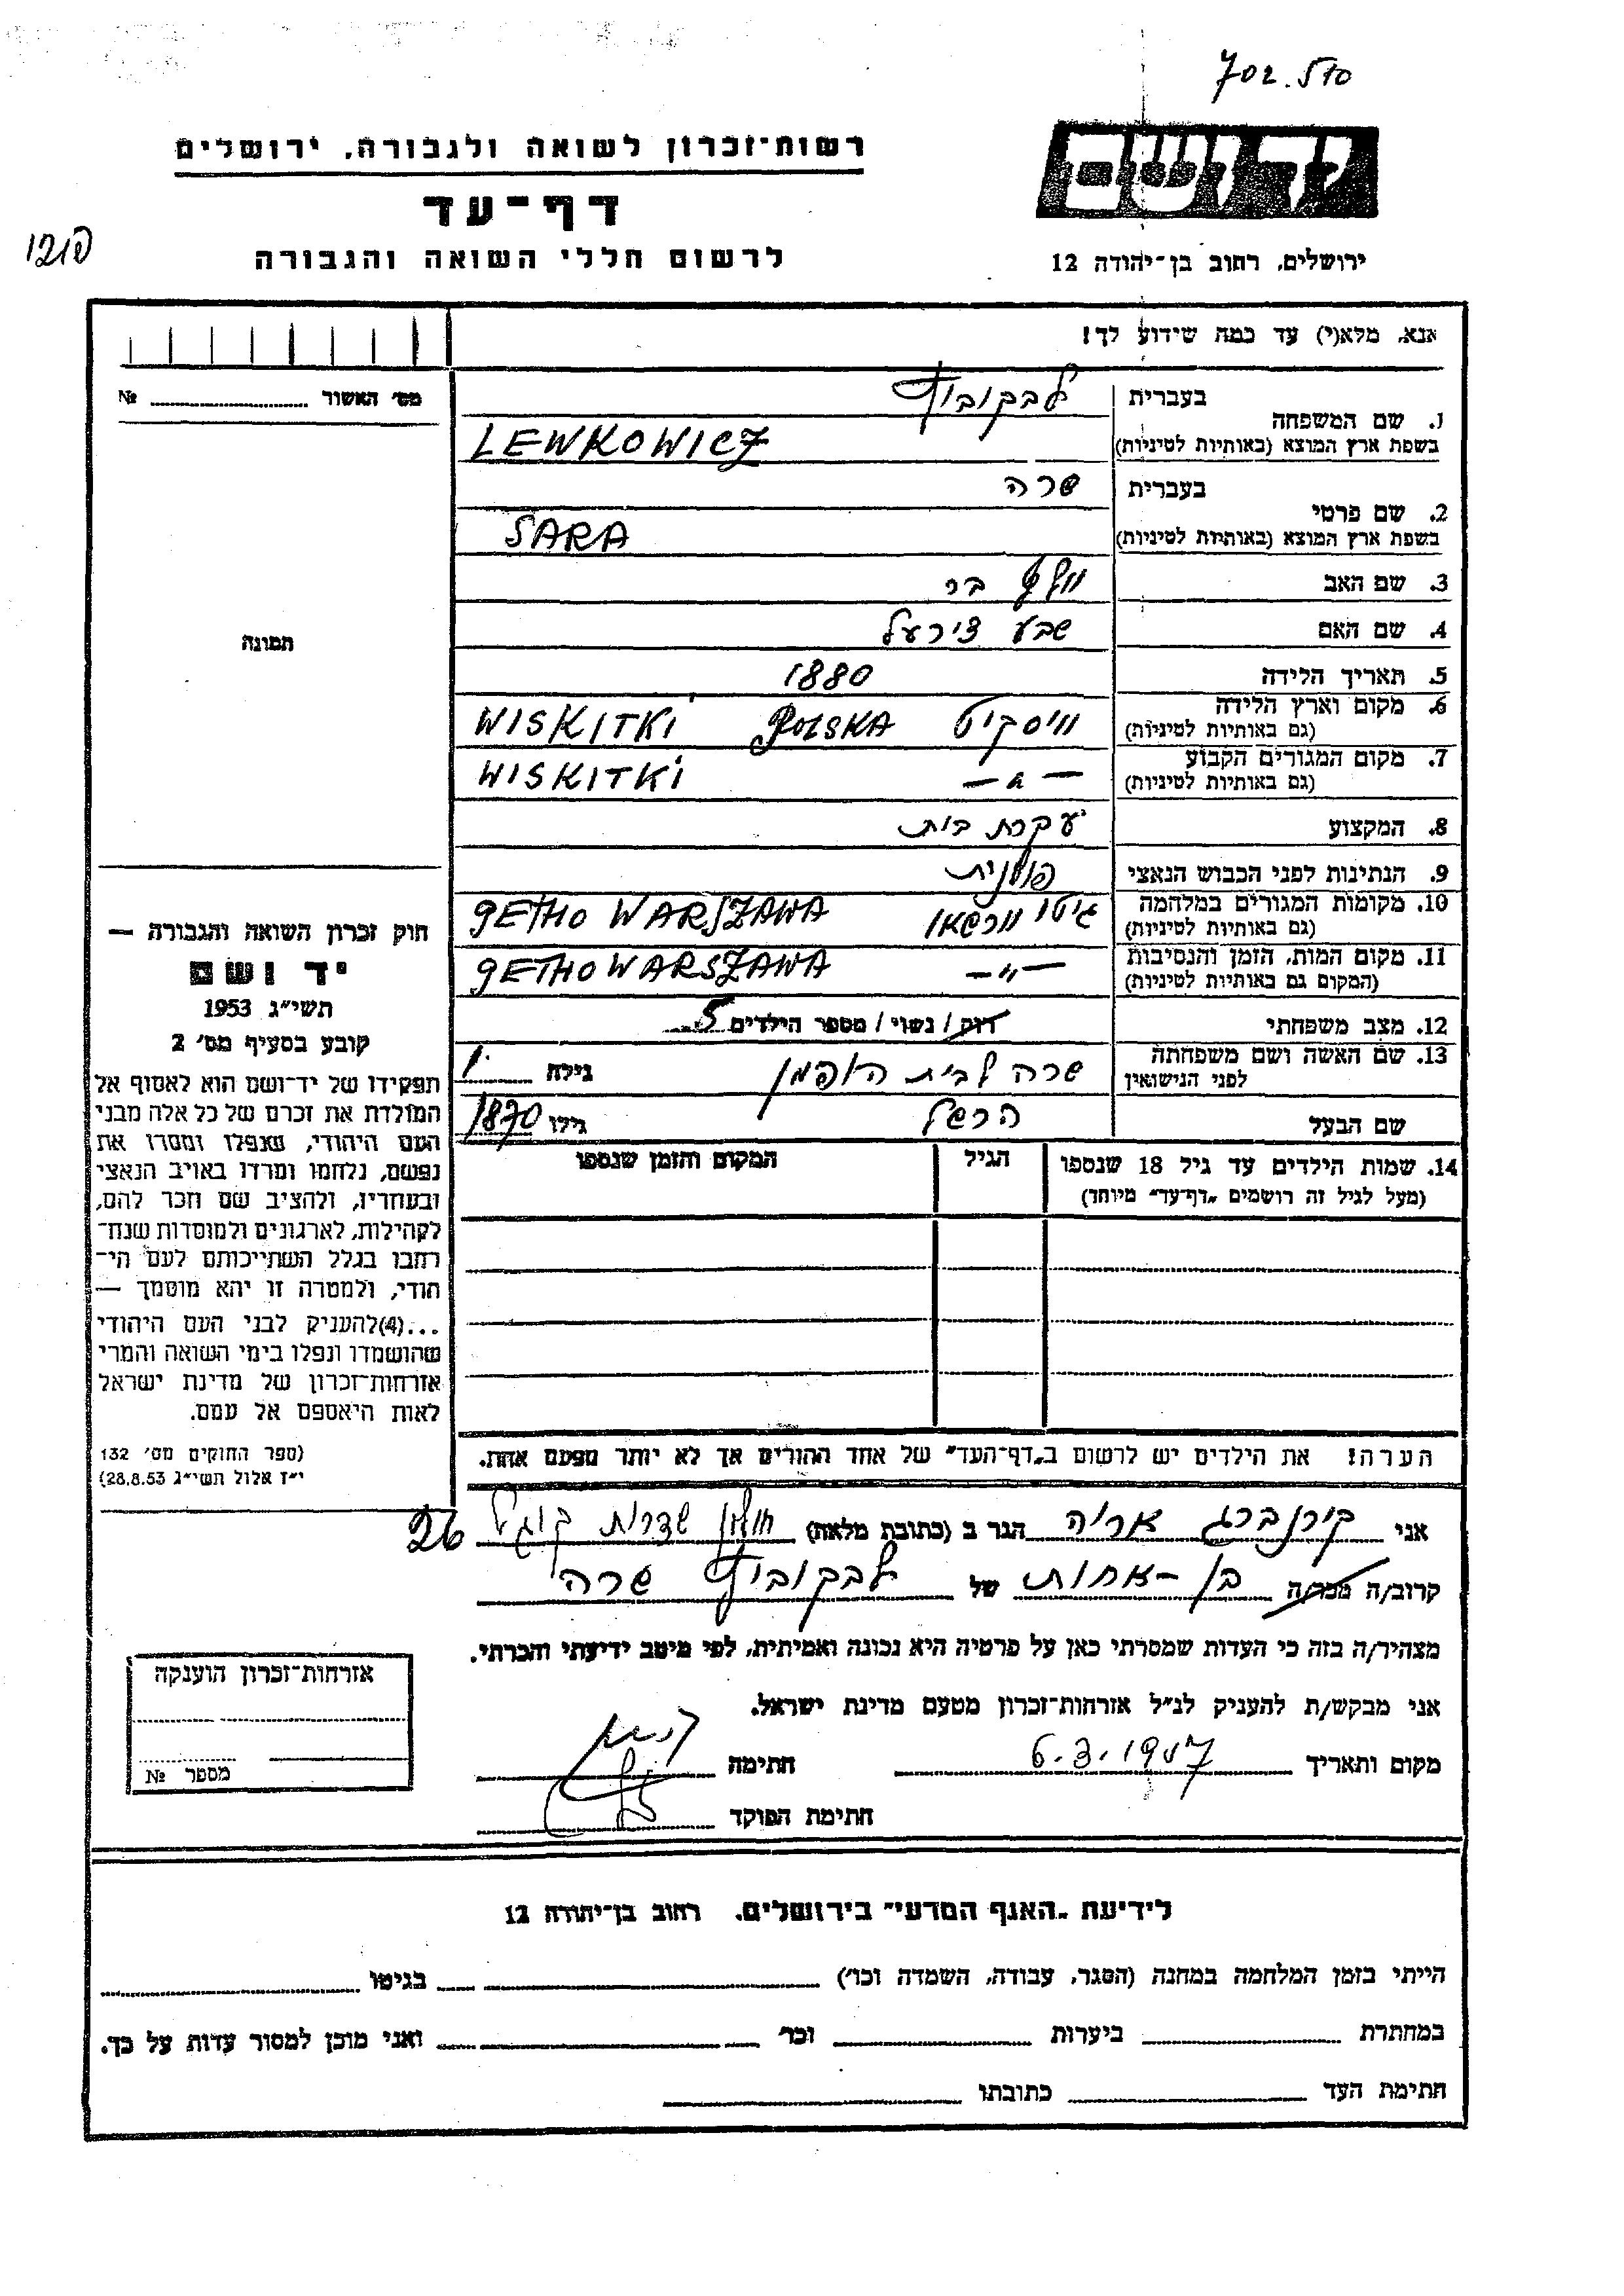 702.510
רשות־זכרון לשואה ולגבורה, ירושלים
דף־עד
לרשום חללי השואה והגבורה
יד ושם
ירושלים, רחוב בן־יהודה 12
אנא, מלא(י) עד כמה שידוע לך!
מס׳ האשור № 
בעברית לבקוביץ
1. שם המשפחה
בשפת ארץ המוצא (באותיות לטיניות) LEWKOWICZ
בעברית שרה
2. שם פרטי
בשפת ארץ המוצא (באותיות לטיניות) SARA
3. שם האב וולף בר
4. שם האם שבע צירעל
5. תאריך הלידה 1880
6. מקום וארץ הלידה
(גם באותיות לטיניות) וויסקיט POLSKA WISKITKI
7. מקום המגורים הקבוע
(גם באותיות לטיניות) — " — WISKITKI
8. המקצוע עקרת בית
9. הנתינות לפני הכבוש הנאצי פולנית
10. מקומות המגורים במלחמה
(גם באותיות לטיניות) גיטו וורשאו GETHO WARSZAWA
11. מקום המות, הזמן והנסיבות
(המקום גם באותיות לטיניות) — " — GETHO WARSZAWA
12. מצב משפחתי רוק / נשוי / מספר הילדים 5
13. שם האשה ושם משפחתה
לפני הנישואין שרה לבית הופמן גילה
שם הבעל הרשל גילו 1870
14. שמות הילדים עד גיל 18 שנספו
(מעל לגיל זה רושמים „דף־עד" מיוחד)
הגיל
המקום והזמן שנספו
תמונה
חוק זכרון השואה והגבורה —
יד ושם
תשי״ג 1953
קובע בסעיף מס׳ 2
תפקידו של יד־ושם הוא לאסוף אל
המולדת את זכרם של כל אלה מבני
העם היהודי, שנפלו ומסרו את
נפשם, נלחמו ומרדו באויב הנאצי
ובעוזריו, ולהציב שם וזכר להם,
לקהילות, לארגונים ולמוסדות שנח־
רחבו בגלל השתייכותם לעם הי־
הודי, ולמטרה זו יהא מוסמך —
...(4)להעניק לבני העם היהודי
שהושמדו ונפלו בימי השואה והמרי
אזרחות־זכרון של מדינת ישראל
לאות היאספם אל עמם.
(ספר החוקים מס׳ 132
י״ז אלול תשי״ג 28.8.53)
הערה! את הילדים יש לרשום ב„דף־העד" של אחד ההורים אך לא יותר מפעם אחת.
אני קירנברג אריה הגר ב (כתובת מלאה) חולון שדרות קוגל 26
קרוב/ה מכר/ה בן-אחות של לבקוביץ שרה
מצהיר/ה בזה כי העדות שמסרתי כאן על פרטיה היא נכונה ואמיתית, לפי מיטב ידיעתי והכרתי.
אני מבקש/ת להעניק לנ״ל אזרחות־זכרון מטעם מדינת ישראל.
מקום ותאריך חתימה
חתימת הפוקד
אזרחות־זכרון הוענקה
מספר №
לידיעת „האגף המדעי" בירושלים, רחוב בן־יהודה 12
הייתי בזמן המלחמה במחנה (הסגר, עבודה, השמדה וכו׳) בגיטו
במחתרת ביערות וכו׳ ואני מוכן למסור עדות על כך.
חתימת העד כתובתו